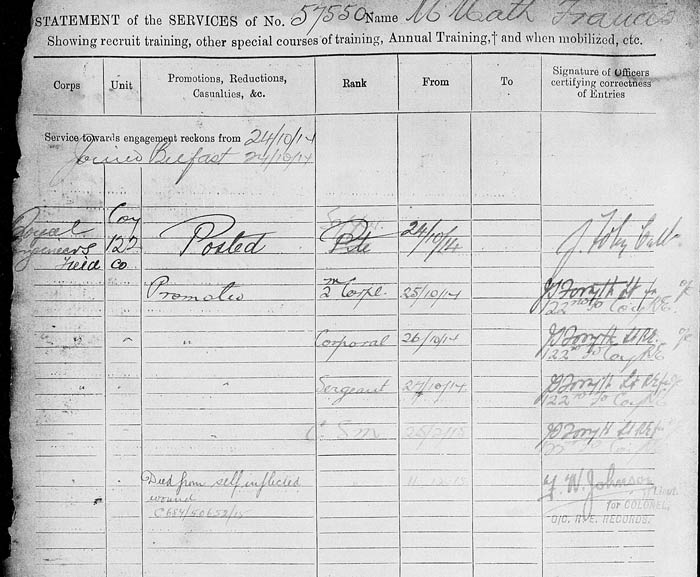 STATEMENT of the SERVICES of No. 57550 Name McMath Francis
Showing recruit training, other special courses of training, Annual Training,† and when mobilized, etc.
Corps Unit Promotions, Reductions, Casualties, &c. Rank From To Signature of Officers certifying correctness of Entries
Service towards engagement reckons from 24/10/14
Joined Belfast 24/10/14
Royal Coy
Engineers 122 Posted Pte 24/10/14
Field Co
Promoted 2nd Corpl. 25/10/14 Forsyth Lt
122nd Fd Coy RE
" " Corporal 26/10/14 Forsyth Lt RE
122nd Fd Coy RE
" " Sergeant 27/10/14 Forsyth Lt RE
122nd Fd Coy RE
C.S.M. Forsyth Lt RE
Died from self inflicted "
wound W. Johnson
for COLONEL,
O/C. R.E. RECORDS.